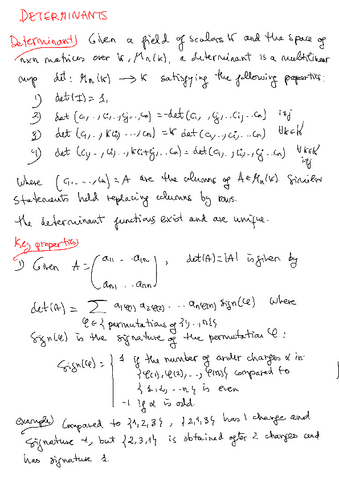 DETERMINANTS
Determinant) Given a field of scalars K and the space of
nxn matrices over K, Mn(K), a determinant is a multilinear
map det: Mn(K) → K satisfying the following properties:
1) det(I) = 1,
2) det (c1, .., ci, .., cj, .. cn) = -det(c1, .., cj, .. ci, .. cn) i≠j
3) det (c1, .., kci, ..., cn) = k det (c1, .., ci, .. cn) ∀k∈K
4) det (c1, .., ci, .., kci+cj, .., cn) = det(c1, .., ci, .. cj .. cn) ∀k∈K i≠j
where (c1, ..., cn) = A are the columns of A∈Mn(K). Similar
statements hold replacing columns by rows.
The determinant functions exist and are unique.
Key properties)
1) Given A = (a11 .. a1n
an1 ... ann), det(A) = |A| is given by
det(A) = ∑ a1φ(1) a2φ(2) ... anφ(n) sign(φ) where
φ∈{permutations of {1, .., n}}
Sign(φ) is the signature of the permutation φ:
Sign(φ) = { 1 if the number of order changes α in
{φ(1), φ(2), .., φ(n)} compared to
{1, 2, .. n} is even
-1 if α is odd.
example) Compared to {1,2,3}, {2,1,3} has 1 change and
signature -1, but {2,3,1} is obtained after 2 changes and
has signature 1.